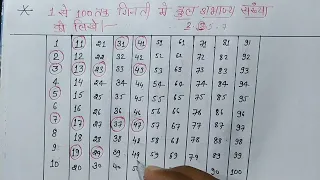 * 1 से 100 तक गिनती में कुल अभाज्य संख्या
को लिखें।- 2 3 5 7
1 11 21 31 41 51 61 71 81 91
2 12 22 32 42 52 62 72 82 92
3 13 23 33 43 53 63 73 83 93
4 14 24 34 44 54 64 74 84 94
5 15 25 35 45 55 65 75 85 95
6 16 26 36 46 56 66 76 86 96
7 17 27 37 47 57 67 77 87 97
8 18 28 38 48 58 68 78 88 98
9 19 29 39 49 59 69 79 89 99
10 20 30 40 90 100